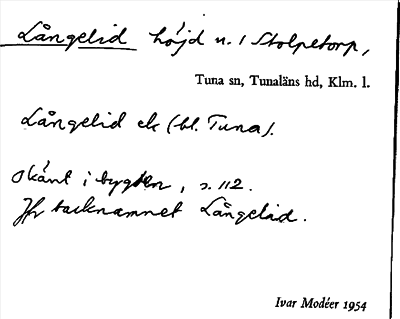 Långelid höjd n. i Stolpetorp,
Tuna sn, Tunaläns hd, Klm. l.
Långelid ek (bl. Tuna).
okänt i bygden, s. 112.
Jfr backnamnet Långelid.
Ivar Modéer 1954